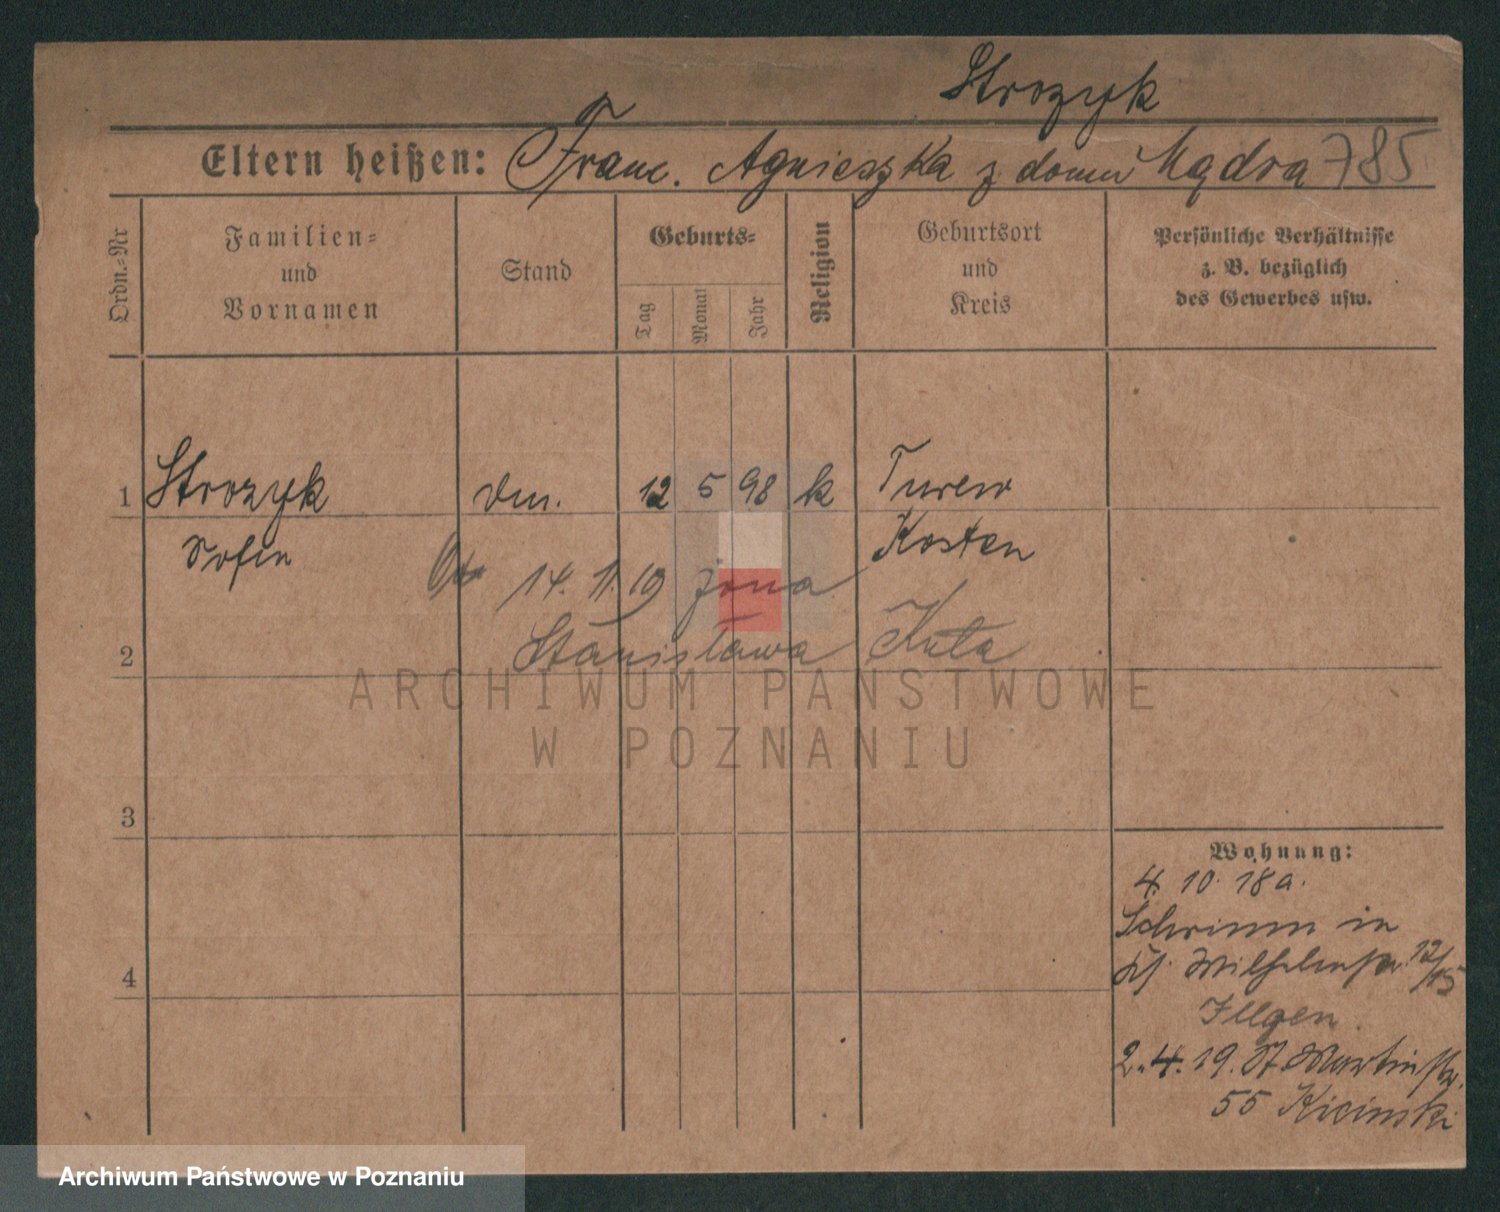 Strozyk
Eltern heißen: Franc. Agnieszka z domu Mądra 785
Ordn.-Nr
Familien-
und
Vornamen
Stand
Geburts-
Tag
Monat
Jahr
Religion
Geburtsort
und
Kreis
Persönliche Verhältnisse
z. B. bezüglich
des Gewerbes usw.
1 Strozyk 12 5 98 k Turew
Sofie Kosten
14. 11. 19 żona
2 Stanisława Kuta
3
4
Wohnung:
4. 10. 18 a.
Schrimm in
Wilhelmstr. 12/15
Illgen
2. 4. 19. St. Martinstr.
55 Kicinski
ARCHIWUM PAŃSTWOWE
W POZNANIU
Archiwum Państwowe w Poznaniu